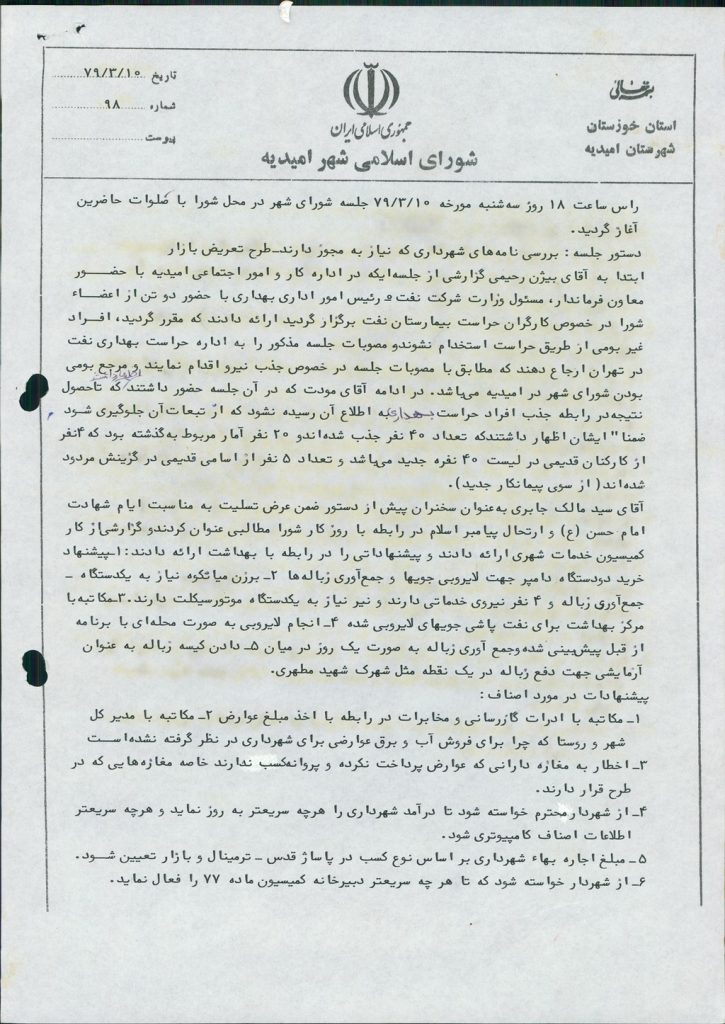 بسمه تعالی
استان خوزستان
شهرستان امیدیه
جمهوری اسلامی ایران
شورای اسلامی شهر امیدیه
تاریخ ۷۹/۳/۱۰
شماره ۹۸
پیوست
راس ساعت ۱۸ روز سه‌شنبه مورخه ۷۹/۳/۱۰ جلسه شورای شهر در محل شورا با صلوات حاضرین
آغاز گردید.
دستور جلسه : بررسی نامه‌های شهرداری که نیاز به مجوز دارند-طرح تعریض بازار
ابتدا به آقای بیژن رحیمی گزارشی از جلسه‌ایکه در اداره کار و امور اجتماعی امیدیه با حضور
معاون فرماندار، مسئول وزارت شرکت نفت و رئیس امور اداری بهداری با حضور دو تن از اعضاء
شورا در خصوص کارگران حراست بیمارستان نفت برگزار گردید ارائه دادند که مقرر گردید، افراد
غیر بومی از طریق حراست استخدام نشوندو مصوبات جلسه مذکور را به اداره حراست بهداری نفت
در تهران ارجاع دهند که مطابق با مصوبات جلسه در خصوص جذب نیرو اقدام نمایند و مرجع بومی
بودن شورای شهر در امیدیه می‌باشد. در ادامه آقای مودت که در آن جلسه حضور داشتند اظهار داشت که تاحصول
نتیجه‌در رابطه جذب افراد حراست بهداری به اطلاع آن رسیده نشود که از تبعات آن جلوگیری شود
ضمنا" ایشان اظهار داشتندکه تعداد ۴۰ نفر جذب شده‌اندو ۲۰ نفر آمار مربوط به‌گذشته بود که ۴نفر
از کارکنان قدیمی در لیست ۴۰ نفره جدید می‌باشد و تعداد ۵ نفر از اسامی قدیمی در گزینش مردود
شده‌اند( از سوی پیمانکار جدید).
آقای سید مالک جابری به‌عنوان سخنران پیش از دستور ضمن عرض تسلیت به مناسبت ایام شهادت
امام حسن (ع) و ارتحال پیامبر اسلام در رابطه با روز کار شورا مطالبی عنوان کردندو گزارشی‌از کار
کمیسیون خدمات شهری ارائه دادند و پیشنهاداتی را در رابطه با بهداشت ارائه دادند: ۱-پیشنهاد
خرید دودستگاه دامپر جهت لایروبی جویها و جمع‌آوری زباله‌ها ۲- برزن میانکوه نیاز به یکدستگاه -
جمع‌آوری زباله و ۴ نفر نیروی خدماتی دارند و نیر نیاز به یکدستگاه موتورسیکلت دارند.۳-مکاتبه‌با
مرکز بهداشت برای نفت پاشی جویهای لایروبی شده ۴- انجام لایروبی به صورت محله‌ای با برنامه
از قبل پیش‌بینی شده‌وجمع آوری زباله به صورت یک روز در میان ۵- دادن کیسه زباله به عنوان
آزمایشی جهت دفع زباله در یک نقطه مثل شهرک شهید مطهری.
پیشنهادات در مورد اصناف :
۱- مکاتبه با ادرات گازرسانی و مخابرات در رابطه با اخذ مبلغ عوارض ۲- مکاتبه با مدیر کل
شهر و روستا که چرا برای فروش آب و برق عوارضی برای شهرداری در نظر گرفته نشده‌است
۳- اخطار به مغازه دارانی که عوارض پرداخت نکرده و پروانه‌کسب ندارند خاصه مغازه‌هایی که در
طرح قرار دارند.
۴- از شهردار محترم خواسته شود تا درآمد شهرداری را هرچه سریعتر به روز نماید و هرچه سریعتر
اطلاعات اصناف کامپیوتری شود.
۵- مبلغ اجاره بهاء شهرداری بر اساس نوع کسب در پاساژ قدس - ترمینال و بازار تعیین شود.
۶- از شهردار خواسته شود که تا هر چه سریعتر دبیرخانه کمیسیون ماده ۷۷ را فعال نماید.